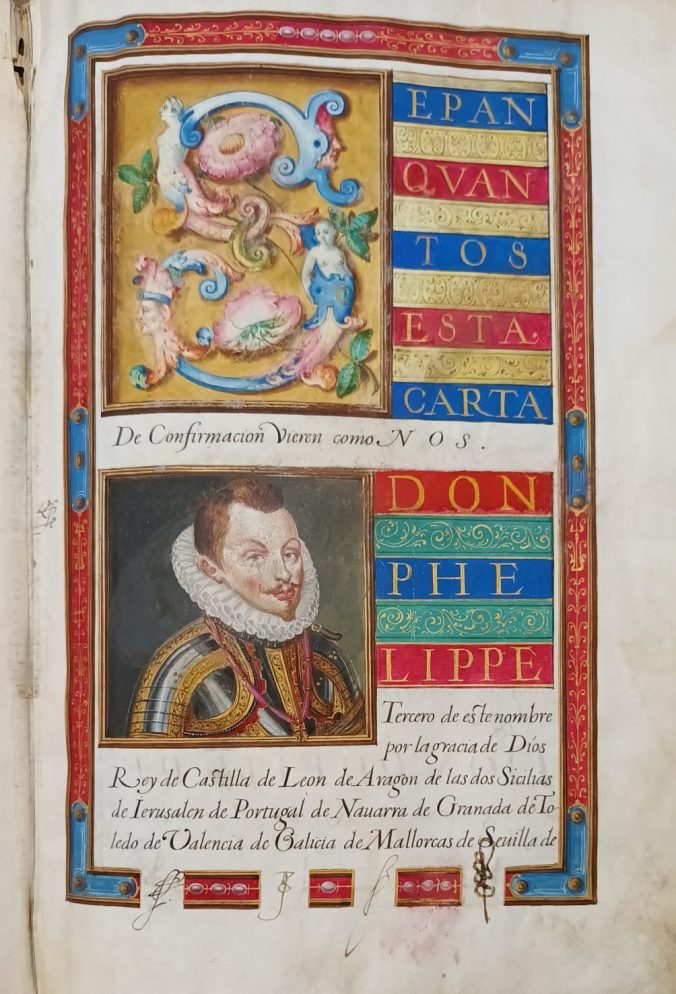 S
EPAN
QVAN
TOS
ESTA
CARTA
De Confirmacion Vieren como N O S .
DON
PHE
LIPPE
Tercero de este nombre
por la gracia de Dios
Rey de Castilla de Leon de Aragon de las dos Sicilias
de Ierusalen de Portugal de Nauarra de Granada de To-
ledo de Valencia de Galicia de Mallorcas de Seuilla de